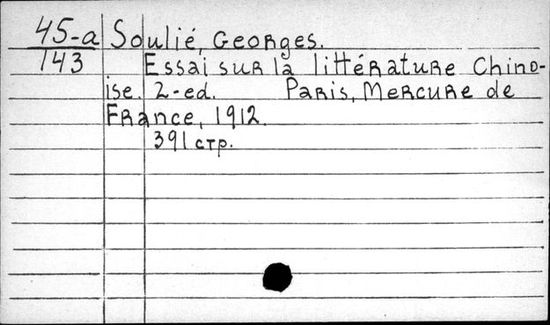 45-a Soulié, Georges.
143 Essai sur la littérature Chino-
ise. 2-ed. Paris, Mercure de
France, 1912.
391 стр.